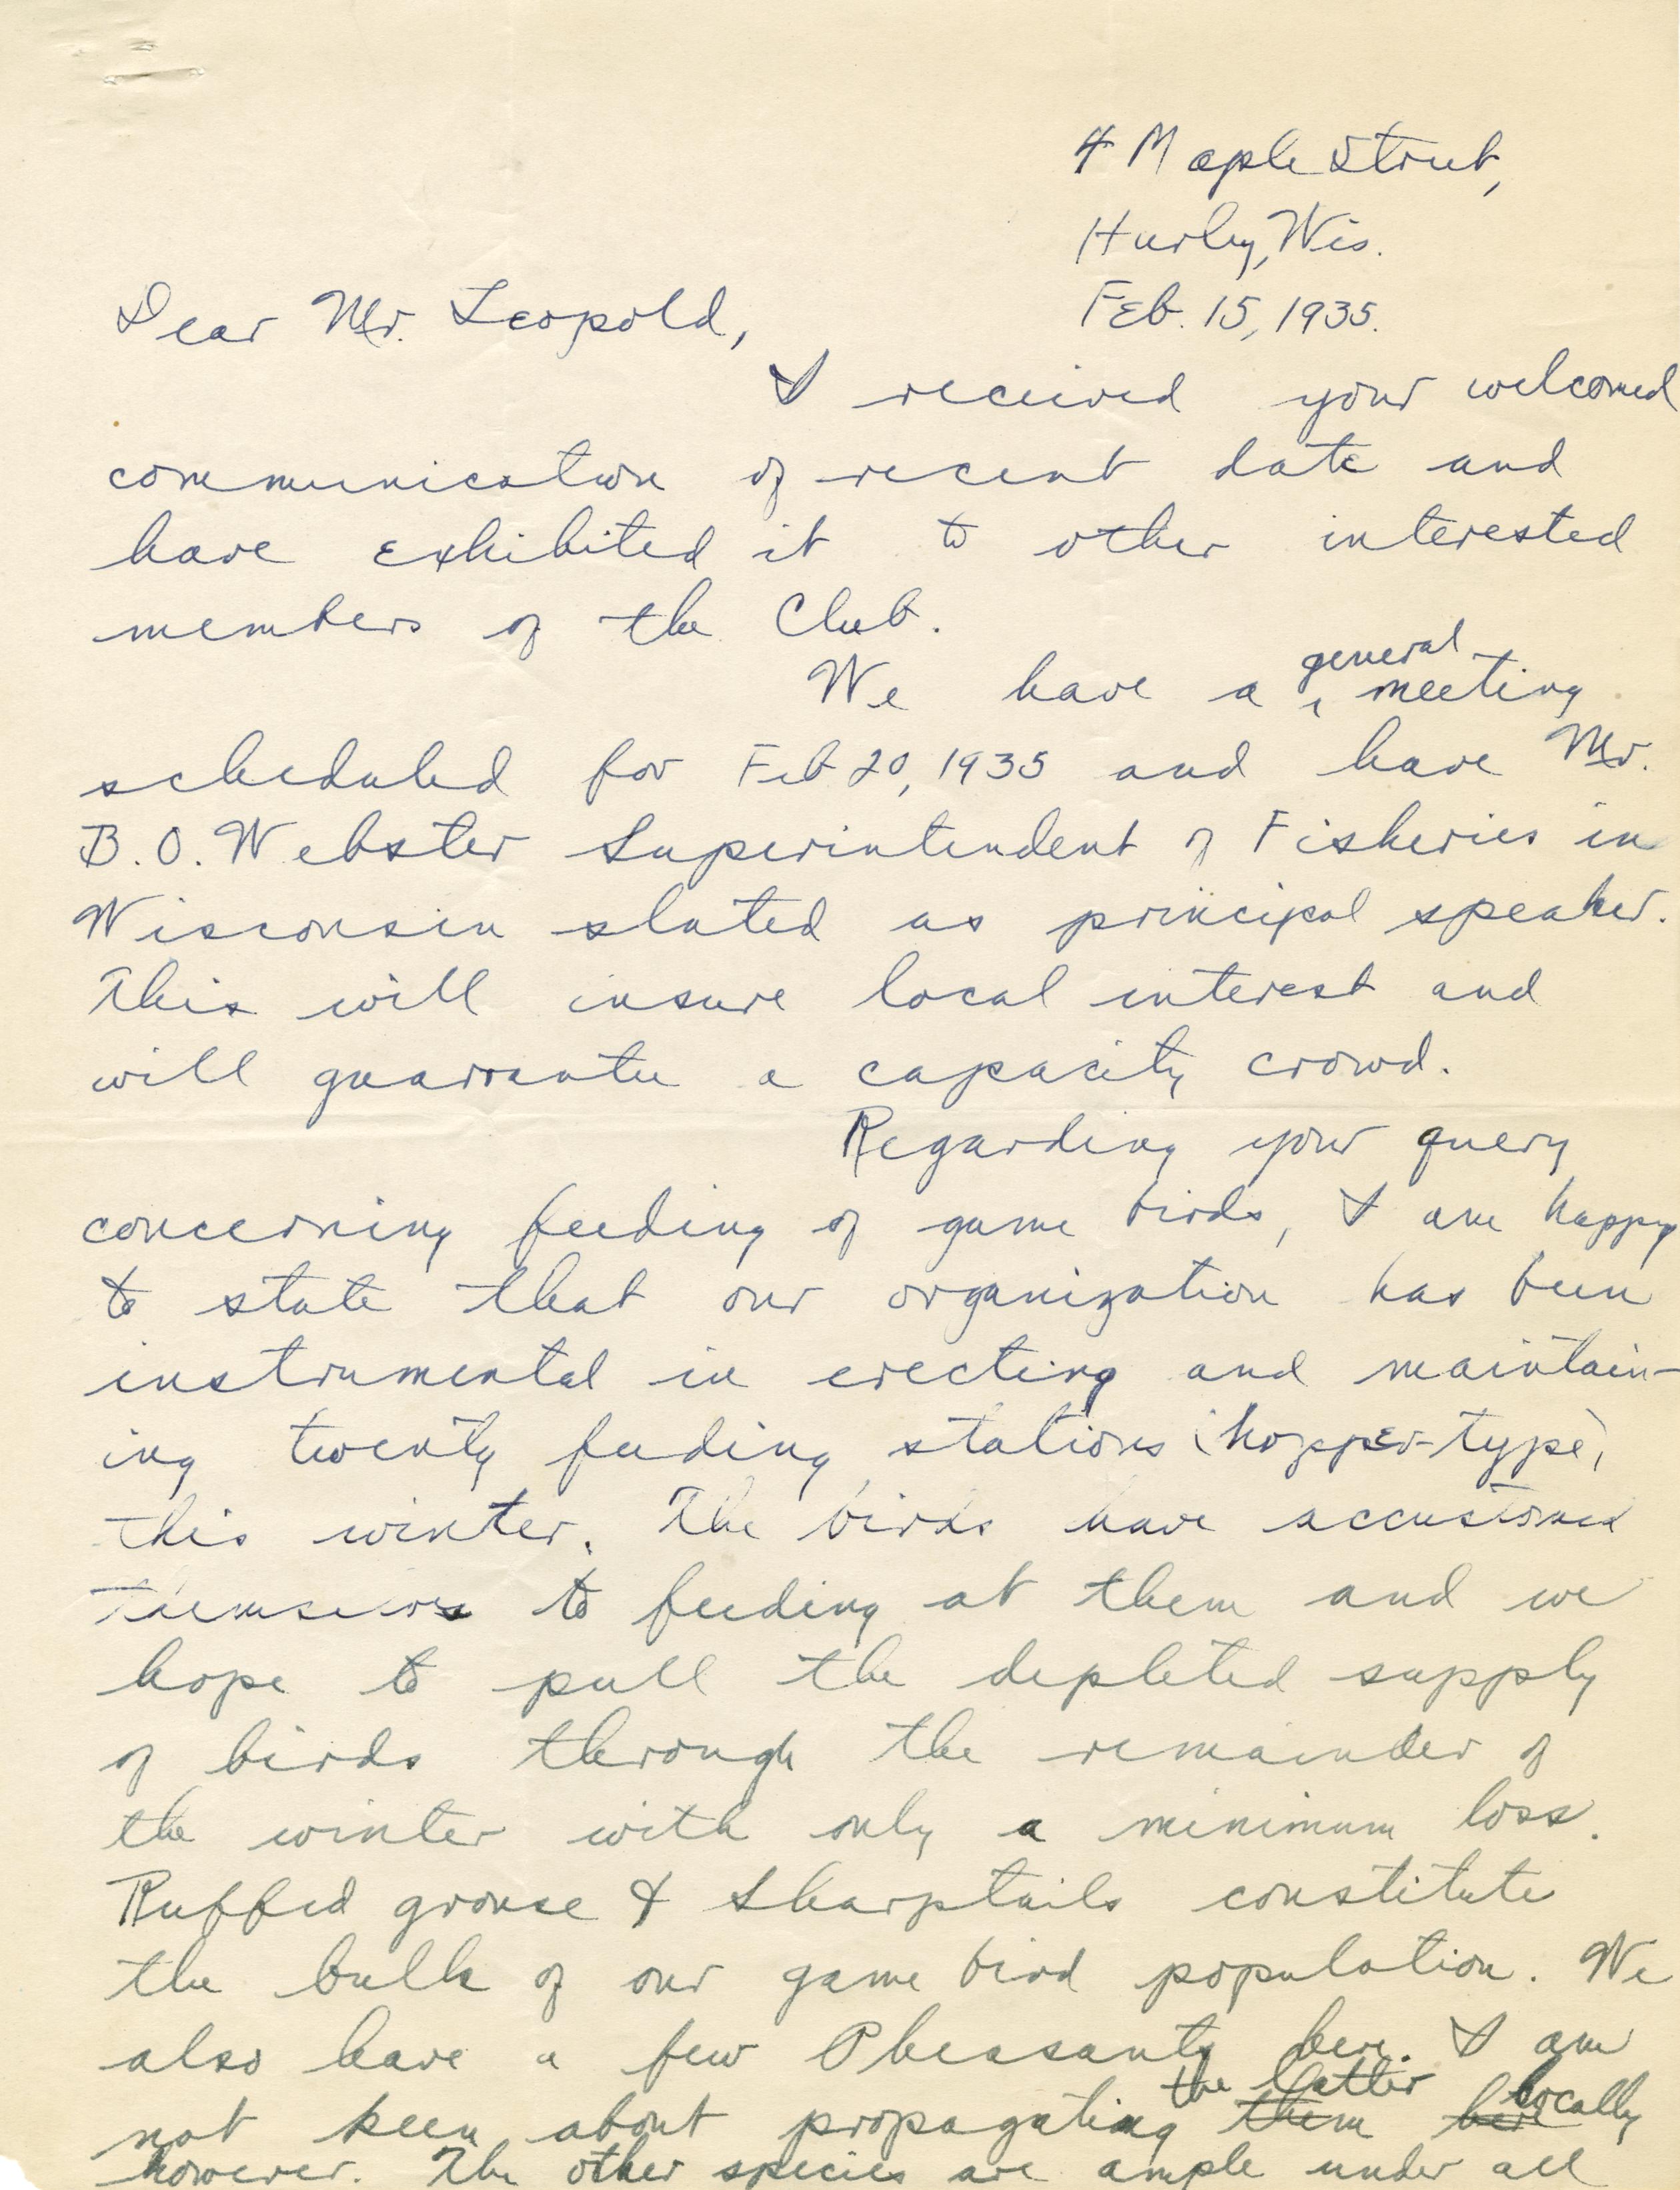 4 Maple Street,
Hurley, Wis.
Feb. 15, 1935.
Dear Mr. Leopold,
I received your welcomed
communication of recent date and
have exhibited it to other interested
members of the Club.
We have a general meeting
scheduled for Feb 20, 1935 and have Mr.
B.O. Webster Superintendent of Fisheries in
Wisconsin slated as principal speaker.
This will insure local interest and
will guarrantee a capacity crowd.
Regarding your query
concerning feeding of game birds, I am happy
to state that our organization has been
instrumental in erecting and maintain-
ing twenty feeding stations (hopper-type)
this winter. The birds have accustomed
themselves to feeding at them and we
hope to pull the depleted supply
of birds through the remainder of
the winter with only a minimum loss.
Ruffed grouse & Sharptails constitute
the bulk of our game bird population. We
also have a few Pheasants here. I am
not keen about propagating them the latter here locally
however. The other species are ample under all